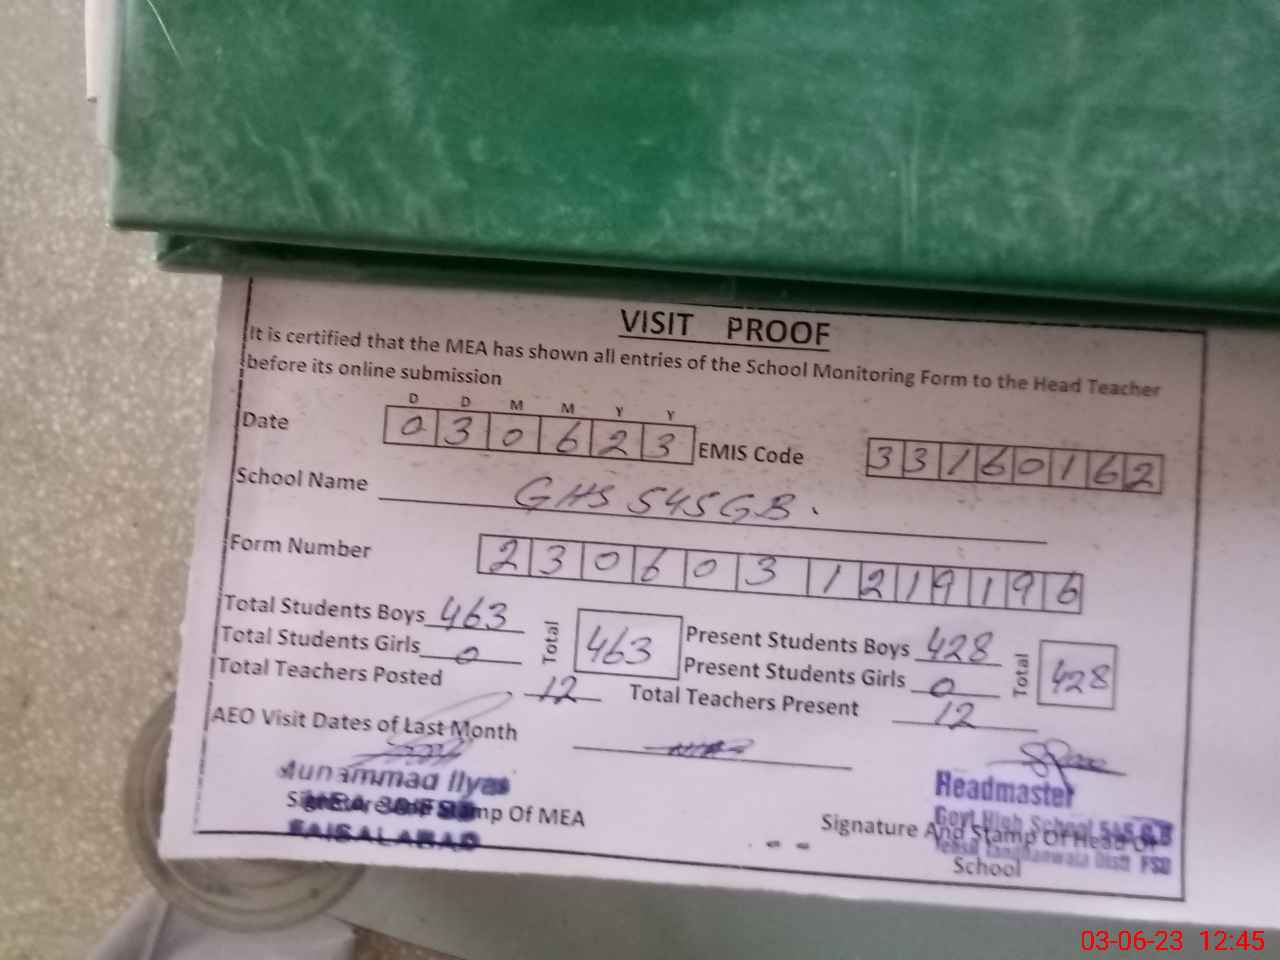 VISIT PROOF
It is certified that the MEA has shown all entries of the School Monitoring Form to the Head Teacher
before its online submission
D D M M Y Y
Date 0 3 0 6 2 3 EMIS Code 3 3 1 6 0 1 6 2
School Name GHS 545 GB.
Form Number 2 3 0 6 0 3 1 2 1 9 1 9 6
Total Students Boys 463 Total 463 Present Students Boys 428 Total 428
Total Students Girls 0 Present Students Girls 0
Total Teachers Posted 12 Total Teachers Present 12
AEO Visit Dates of Last Month
Muhammad Ilyas
Signature And Stamp Of MEA
FAISALABAD
Headmaster
Govt High School 545 G.B
Signature And Stamp Of Head Of
School
Dist FSD
03-06-23 12:45